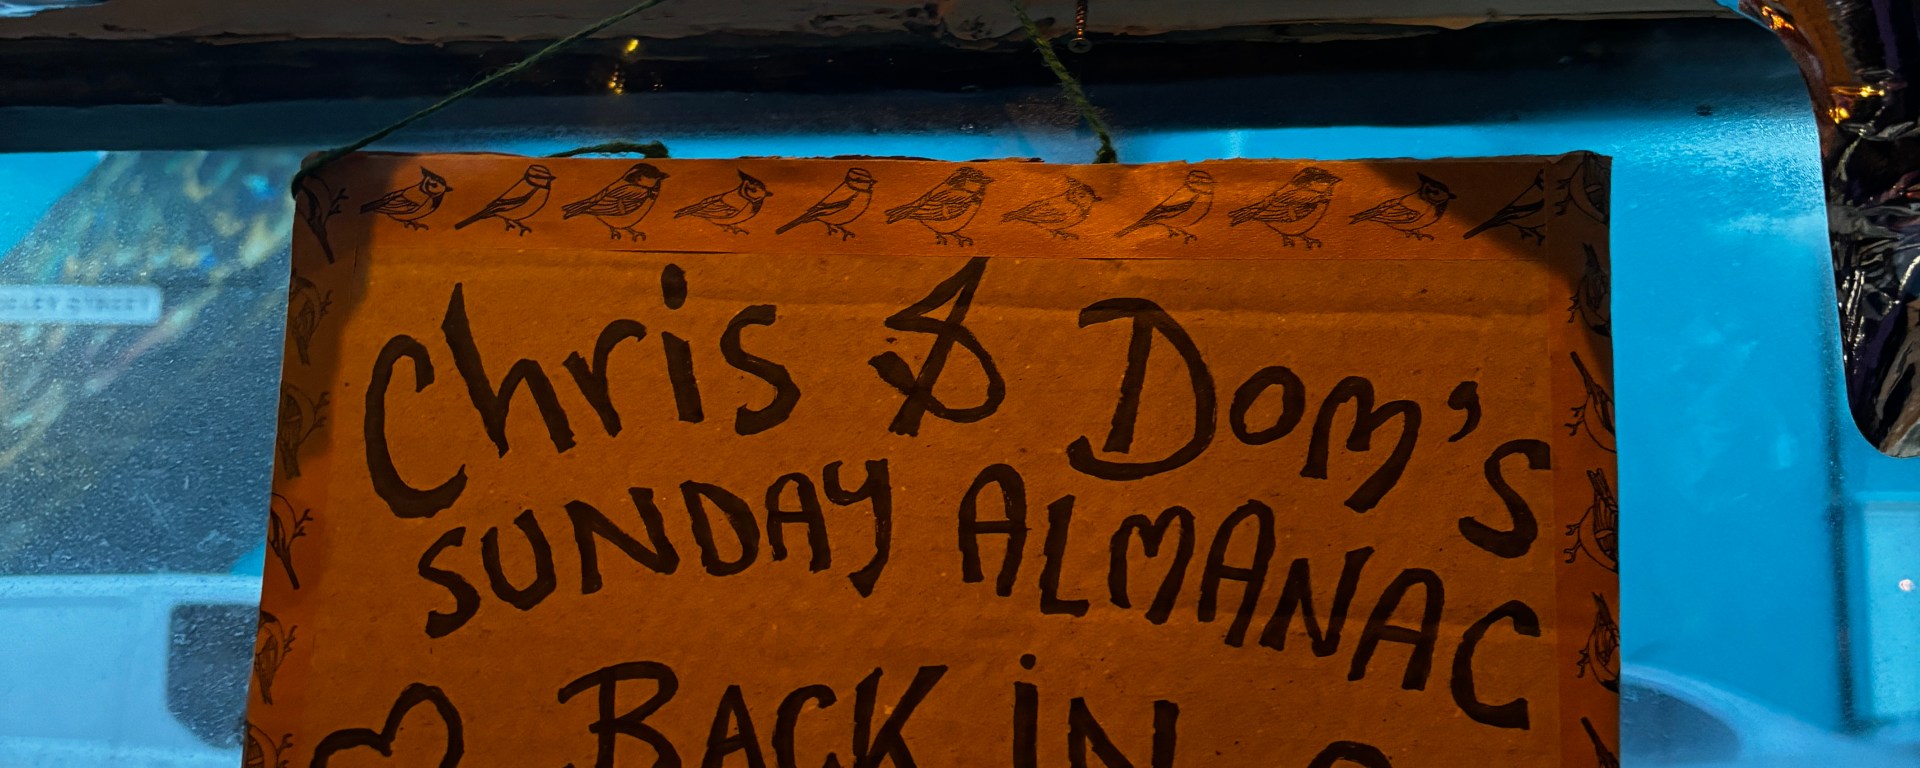 Chris & Dom's
SUNDAY ALMANAC
BACK IN